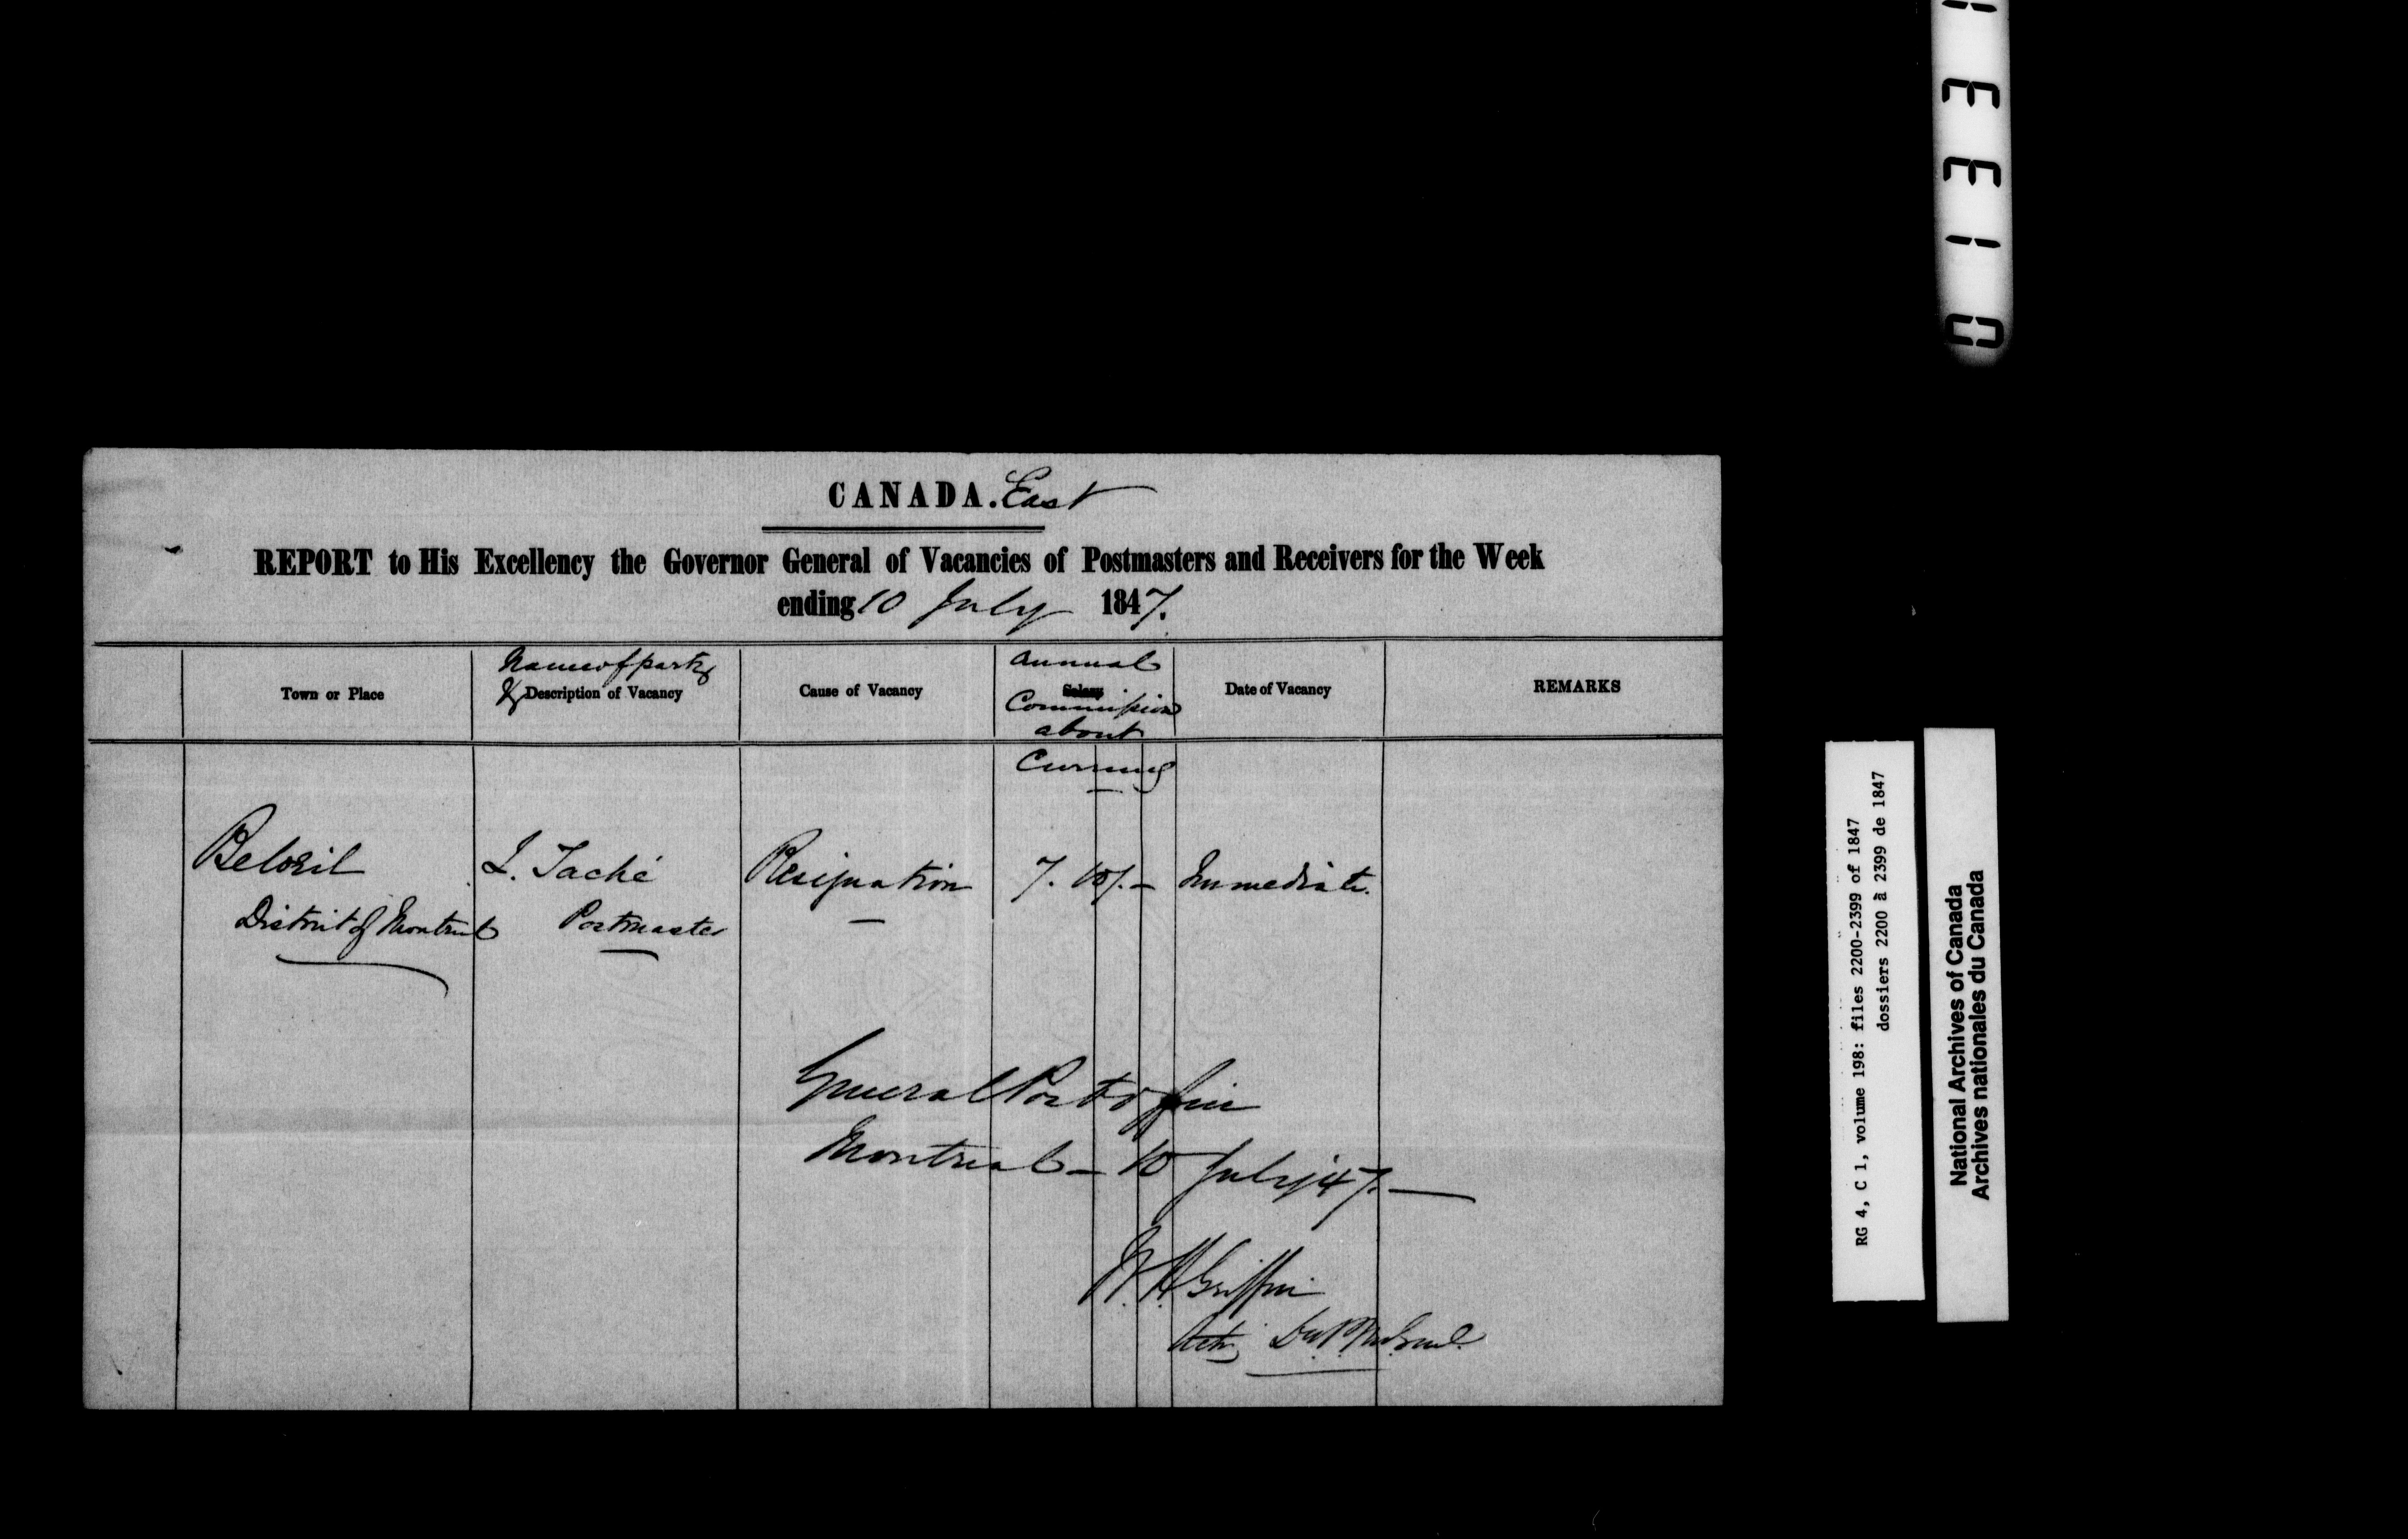 CANADA. East
REPORT to His Excellency the Governor General of Vacancies of Postmasters and Receivers for the Week
ending 10 July 1847.
Town or Place
Name of party
& Description of Vacancy
Cause of Vacancy
Annual
Salary
Commission
about
Date of Vacancy
REMARKS
Currency
Belœil
District of Montreal
L. Taché
Postmaster
Resignation
7. 10/. –
Immediate.
General Post Office
Montreal – 10 July 47. –
W. H. Griffin
Actg
RG 4, C 1, volume 198: files 2200-2399 of 1847
dossiers 2200 à 2399 de 1847
National Archives of Canada
Archives nationales du Canada